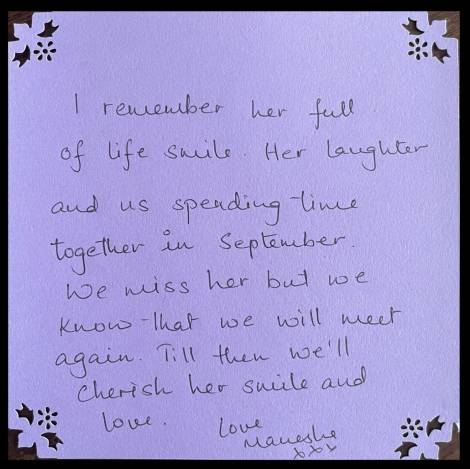 I remember her full
of life smile. Her laughter
and us spending time
together in September.
We miss her but we
know that we will meet
again. Till then we'll
cherish her smile and
love. Love
Maneshe
xxx